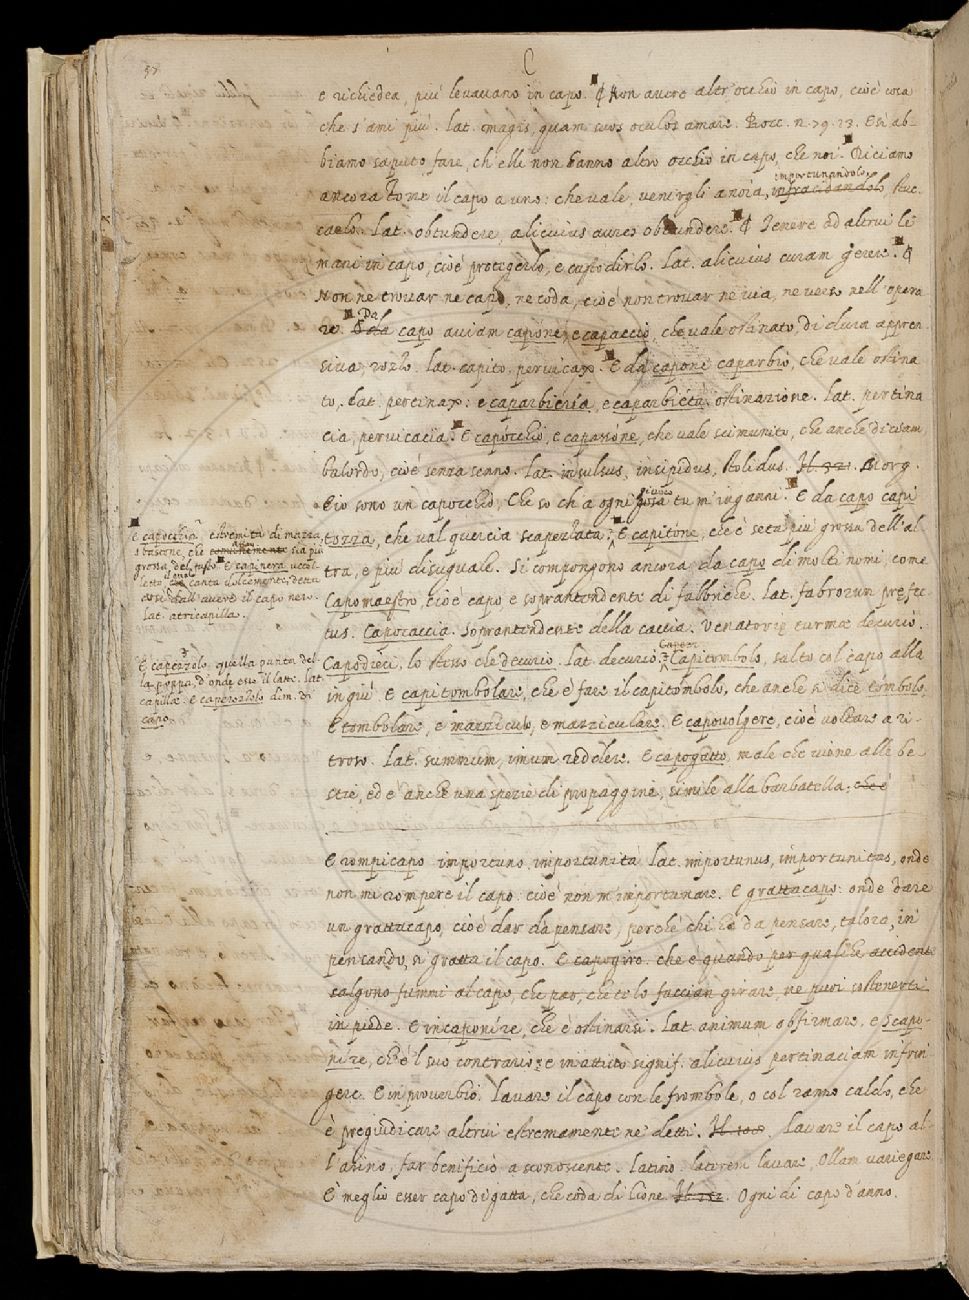 C
e richiedea, più levavano in capo. ¶ Non avere altr'occhio in capo, cioè cosa
che s'ami più. Lat. magis, quam suos oculos amare. Bocc. n. 79. 23. E sì ab-
biamo saputo fare, ch'elli non hanno altro occhio in capo, che noi. Diciamo
ancora Torre il capo a uno: che vale, venirgli a noia, infracidandolo
importunandolo
Lat. obtundere, alicuius aures obtundere. ¶ Tenere ad altrui le
mani in capo, cioè protegerlo, e custodirlo. Lat. alicuius curam gerere. ¶
Non ne trovar ne capo, ne coda, cioè non trovar ne via, ne verso nell'opera
re. Da capo aviam capone, e capaccio, che vale ostinato, di dura appren-
siva, rozzo. Lat. capito. pervicax. E da capone caparbio, che vale ostina
to, Lat. pertinax: e caparbieria, e caparbietà: ostinazione. Lat. pertina
cia, pervicacia. E capocchio, e capassone, che vale scimunito, che anche diciam
balordo, cioè senza senno. Lat. insulsus, insipidus, stolidus. Morg.
Eio sono un capocchio, Che so ch'a ogni giuoco tu m'inganni. E da capo capi
tozza, che val quercia scapezzata. E capitone, cioè seta più grossa dell'al
tra, e più disuguale. Si compongono ancora da capo di molti nomi, come
Capomaestro, cioè capo, e soprantendente di fabbriche. Lat. fabrorum prefec-
tus. Capocaccia. Soprantendente della caccia. Venatoriæ turmæ decurio.
Capodieci, lo stesso che decurio. Lat. decurio. Capitombolo, salto col capo alla
in giù. E capitombolare, che è fare il capitombolo, che anche si dice tombolo,
E tombolare, e mazziculo, e mazziculare. E capovolgere, cioè voltare a ri-
troso. Lat. summum, imum reddere. E capogatto, male che viene alle be
stie, ed è anche una spezie di propaggine, simile alla barbatella: che è
E rompicapo. importuno, importunità. Lat. importunus, importunitas, onde
non mi rompere il capo. cioè non m'importunare. E grattacapo: onde dare
un grattacapo, cioè dar da pensare, perchè chi ha da pensare, talora, in
pensando, si gratta il capo. E capogiro. che è quando per qualche accidente
salgono fummi al capo, che par, che te lo faccian girare, ne puoi sostenerti
in piede. E incaponire, che è ostinarsi. Lat. animum obfirmare, e Scapo-
nire, ch'è 'l suo contrario: e in attivo signif. alicuius pertinaciam infrin
gere. E in proverbio. Lavare il capo con le frombole, o col ranno caldo, che
è pregiudicare altrui estremamente ne' detti. Lavare il capo al-
l'asino, far benificio a sconoscente. latino. laterem lavare, Ollam variegare.
E meglio esser capo di gatta, che coda di lione. Ogni dì capo d'anno.
E capocchia. estremità di mazza,
o bastone, che comunemente sia più
grossa del fusto. E capinera uccel-
letto, che canta dolcemente; detta
così dall'avere il capo nero.
Lat. atricapilla.
E capezzolo, quella punta del-
la poppa, d'onde esce il latte. Lat.
capillæ. E caperozzolo dim. di
capo.